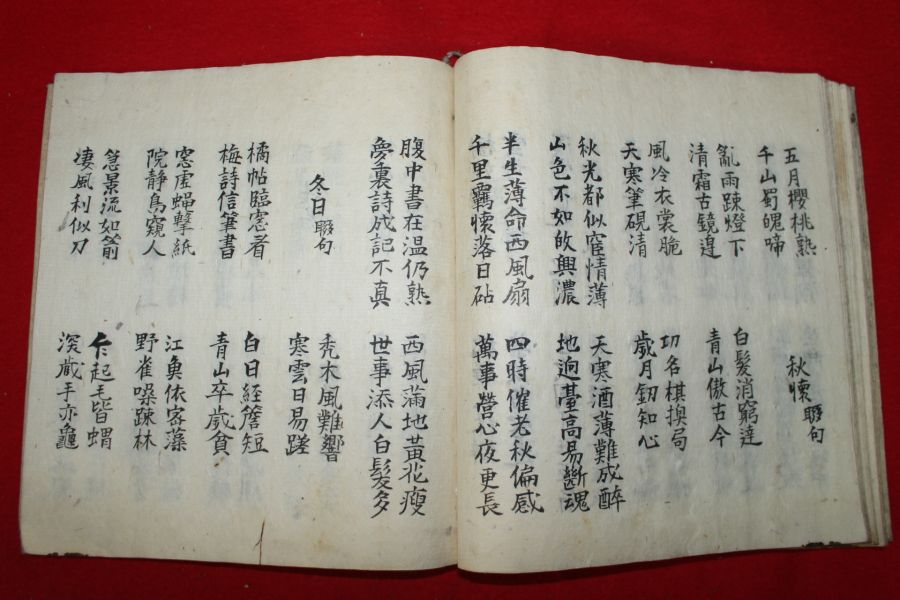 五月櫻桃熟
千山蜀魄啼
秋懷 聮句
亂雨踈燈下
清霜古鏡遑
白髮消窮達
青山傲古今
風冷衣裳脆
天寒筆硯清
功名棋換局
歲月釰知心
秋光都似宦情薄
山色不如故興濃
天寒酒薄難成醉
地逈臺高易斷魂
半生薄命西風扇
千里羈懷落日砧
四時催老秋偏感
萬事營心夜更長
腹中書在温仍熟
夢裏詩成記不真
西風滿地黃花瘦
世事添人白髮多
冬日 聮句
禿木風難響
寒雲日易蹉
橘帖臨窓看
梅詩信筆書
白日經簷短
青山卒歲貧
窓虛蝇擊紙
院靜鳥窺人
江魚依密藻
野雀噪踈林
急景流如箭
凄風利似刀
乍起毛皆蝟
深藏手亦龜